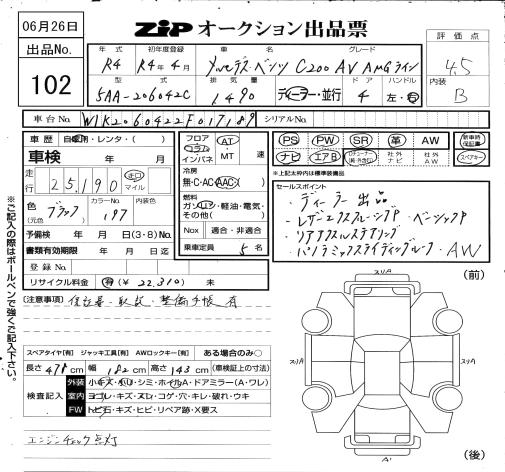 06月26日
ZIP オークション出品票
出品No.
102
評価点
4.5
内装
B
年式 初年度登録 車名 グレード
R4 R4年4月 メルセデス・ベンツ C200 AV AMGライン
型式 排気量 ドア ハンドル
5AA-206042C 1490 ディーラー・並行 4 左・右
車台No. W1K2060422F017189 シリアルNo.
車歴 自家用・レンタ・( )
車検 年 月
走行 25,190 キロ マイル
色 (元色) ブラック カラーNo. 197 内装色
予備検 年 月 日(3・8)Mo.
書類有効期限 年 月 日迄
登録No.
リサイクル料金 有(¥ 22,310) 未
フロア コラム インパネ AT ・MT 速
冷房 無・C・AC・AAC・( )
燃料 ガソリン・軽油・電気・その他( )
Nox 適合・非適合
乗車定員 5 名
PS PW SR 革 AW 新車時保証書
ナビ エアB 社外ナビ 社外AW スペアキー
※上記太枠内は標準装備品
セールスポイント
・ディーラー出品
・レザーエクスクルーシブP ・ベーシックP
・リアアクスルステアリング
・パノラミックスライディングルーフ ・AW
(注意事項) 保証書・取説・整備手帳有
スペアタイヤ[有] ジャッキ工具[有] AWロックキー[有] ある場合のみ○
長さ 478cm 幅 182cm 高さ 143cm (車検証上の寸法)
検査記入
外装 小キズ・凹リ・シミ・ホイルA・ドアミラー(A・ワレ)
室内 ヨゴレ・キズ・スレ・コゲ・穴・キレ・破れ・ウキ
FW トビ石・キズ・ヒビ・リペア跡・X要ス
エンジンチェック点灯
※ご記入の際はボールペンで強くご記入下さい。
(前)
スリA
スリA
スリA
A'
(後)